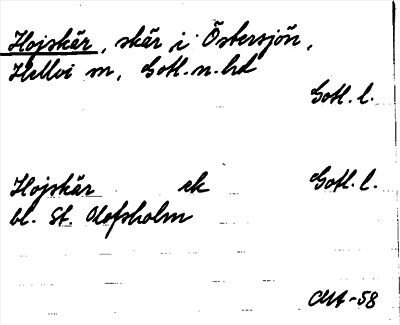 Hojskär, skär i Östersjön,
Hellvi sn, Gotl. n. hd
Gotl. l.
Hojskär ek Gotl. l.
bl. St. Olofsholm
-58